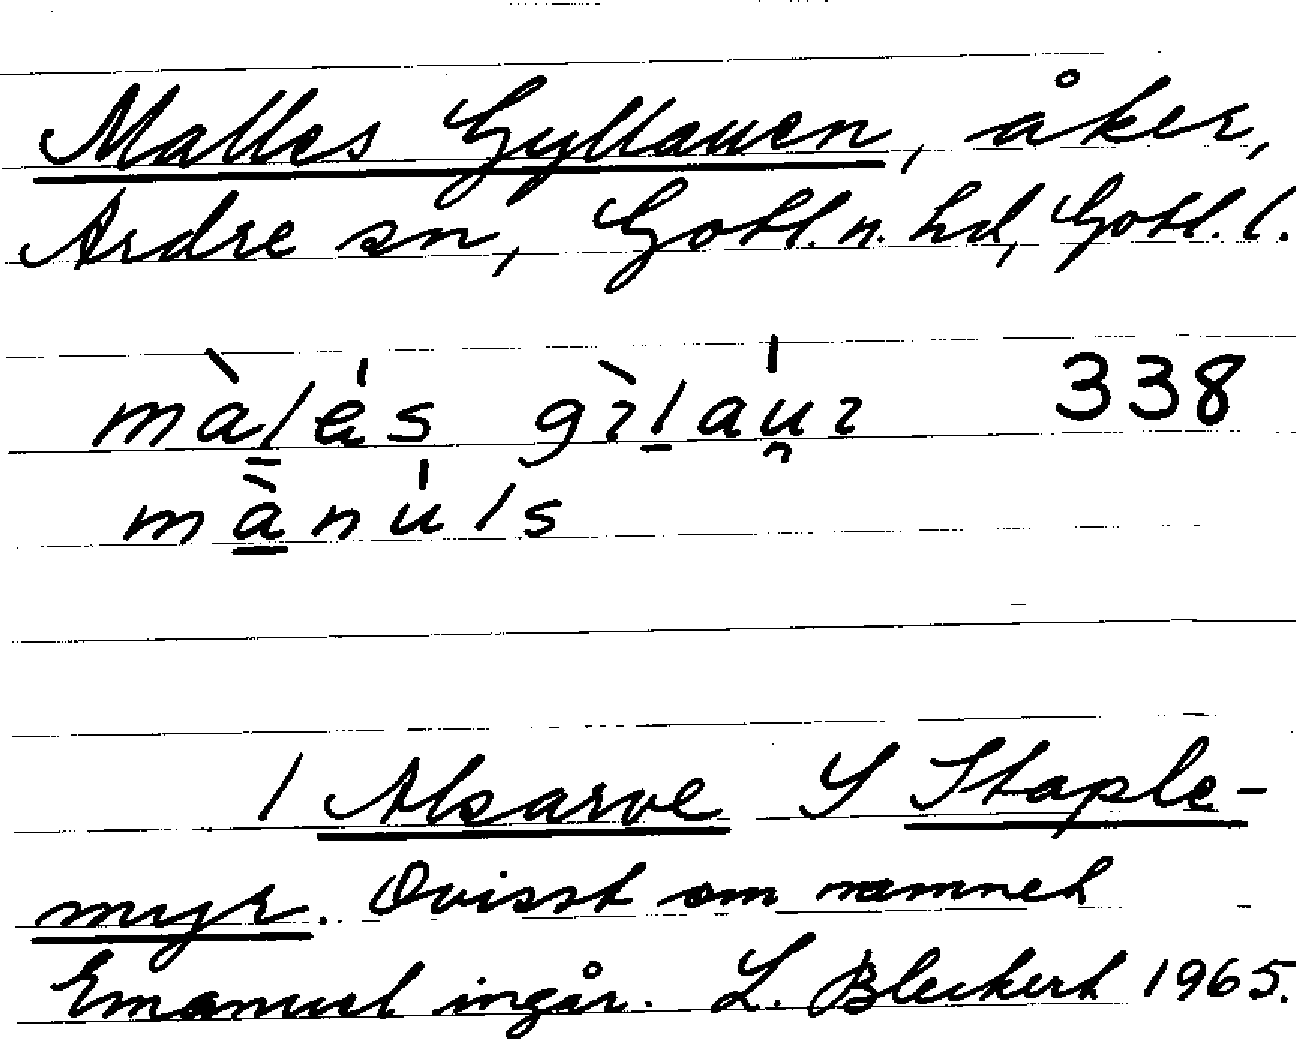 Malles Gyllauen, åker,
Ardre sn, Gotl. n. hd, Gotl. l.
338
1 Alsarve S Staple-
myr. Ovisst om namnet
Emanuel ingår. L. Bleckert 1965.